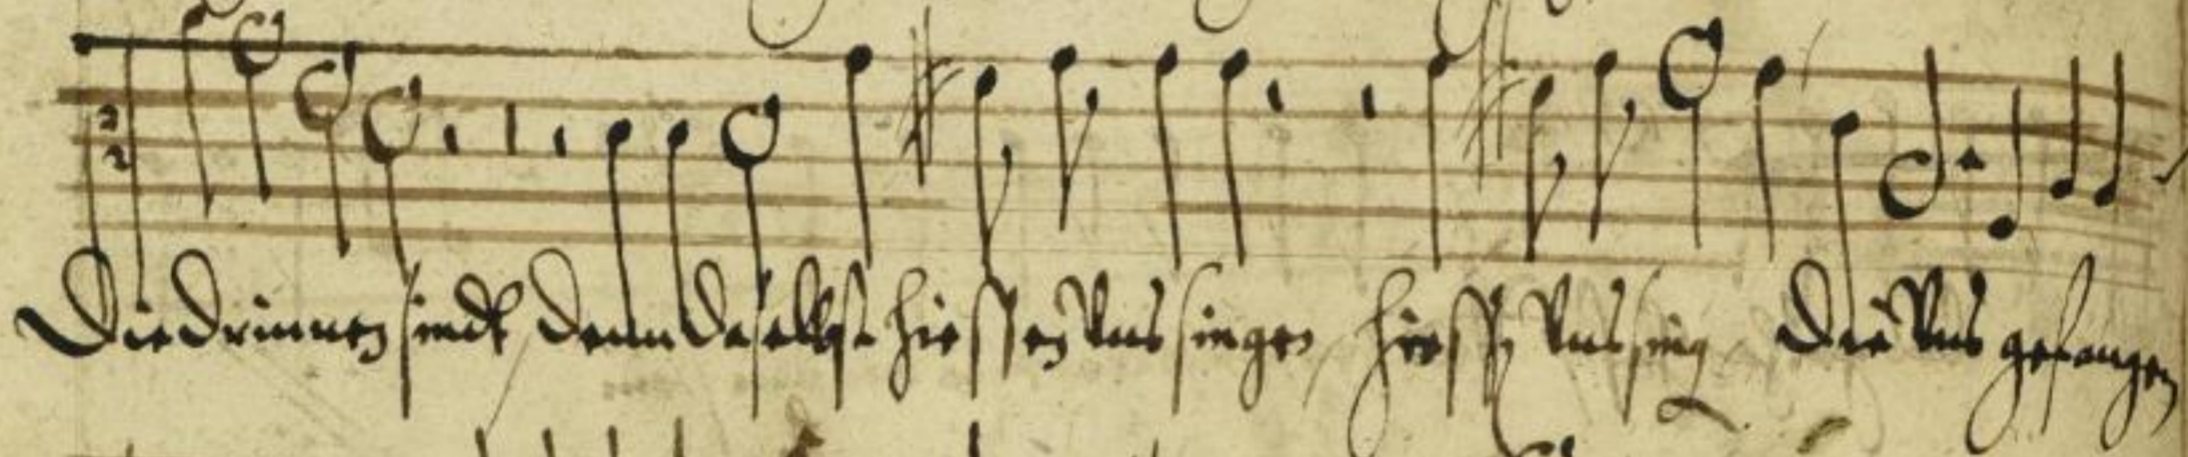 Die drinnen sindt denn daselbst hiessen Uns singen hiessen Uns sing Die Uns gefangen